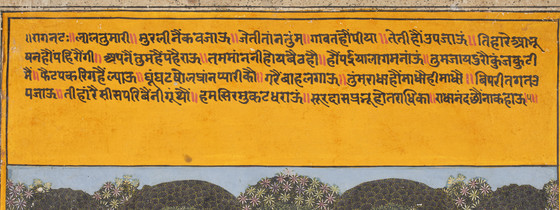 ॥रागनटः॥लालतुमारी॥मुरलीनैंकबजाऊं॥जेतीतांनतुंम॥गावतहौंपीया॥तेतीहौंउपजाऊं॥तिहारेआभू
षनहौंपहिरौंगी॥अपनैंतुमहेंपेहेराऊं॥तुममांननीहोयबैठहौ॥हौंपईयालागमनांऊं॥तुमजायदुरोकुंजकुटी
मैं॥फेटपकरिगहेंल्याऊं॥घूंघटषोलषांनप्यारीकौं॥गरेबांहलगाऊं॥तुंमराधाहौंमाधौहीमाधौ॥बिपरीतगतउ
पजाऊं॥तीहांरैसीसपरिबेंनीगूथौं॥हमसिरमुकटधराऊं॥सूरदासप्रभूहोतराधिका॥राधानंदछौंनाकहाऊं॥